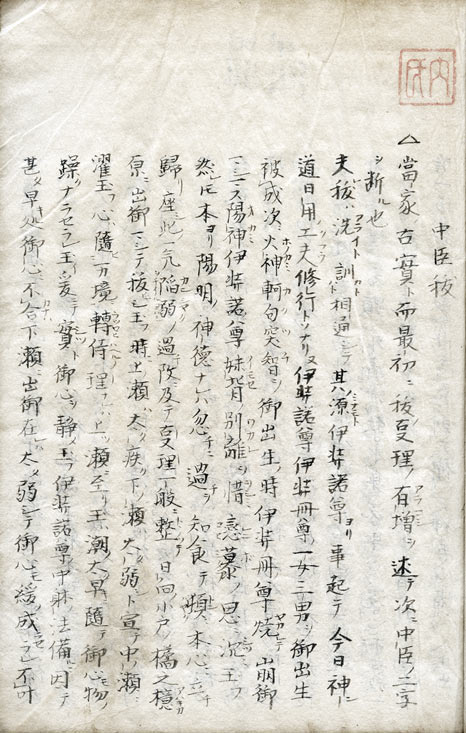 中臣祓
△當家古實ト而最初ニ祓受理ノ有増シ述テ次ニ中臣ノ二字
シ断ル也
夫祓ハ洗ト訓ト相通シテ其源伊弉諾尊ヨリ事起テ今日神ニ
道日用工夫修行トソナリ又伊弉諾尊伊弉冊尊一女三男ヲ御出生
被成次ニ火神軻句突智ヲ御出生ノ時伊弉冊尊焼レ崩御
シ玉フ陽神伊弉諾尊妹背別離ヲ惜ミ恋慕ノ思ニ沈ミ玉フ
然𪜈本ヨリ陽明ノ神徳ナレハ忽チニ過ヲ知食テ頻本心ニ立チ
歸リ座此陷溺ノ過改及テ受理一般ニ整日向小戸ノ橘之檍
原ニ出御シテ祓玉フ時上ノ瀬太タ疾シ下ノ瀬太タ弱シト宣テ中ノ瀬ニ
濯玉フ心隨万境轉倩理上ノ瀬ニ至リ玉潮太早ニ隨テ御心モ物
躁ナラセラレ玉フ爰ニテ實ト御心ヲ静メ玉フ伊弉諾尊中躰備ル因テ
甚タ早処御心ニ不合下ノ瀬ニ出御在ハ太タ弱シテ御心モ緩成不叶